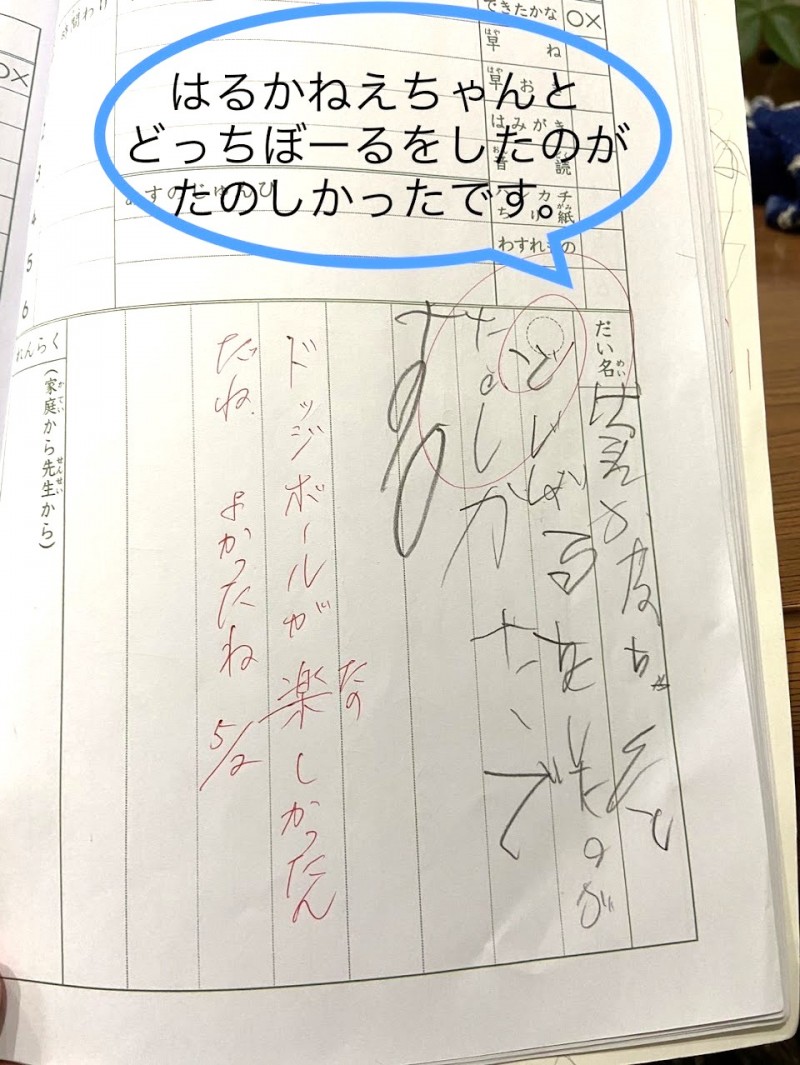 はるかねえちゃんと
どっちぼーるをしたのが
たのしかったです。
できたかな
○×
早ね
はや
早お
はや
はみがき
音読
おん
ハンカチ
ちり紙
がみ
わすれもの
時間わり
あすのじゅんび
3
4
5
6
○×
だい名
めい
どじぼるをしたのが
たのしかたで
す
ドッジボールが楽しかったん
たの
だね よかったね 5/2
れんらく
(家庭から先生から)
かてい
せんせい